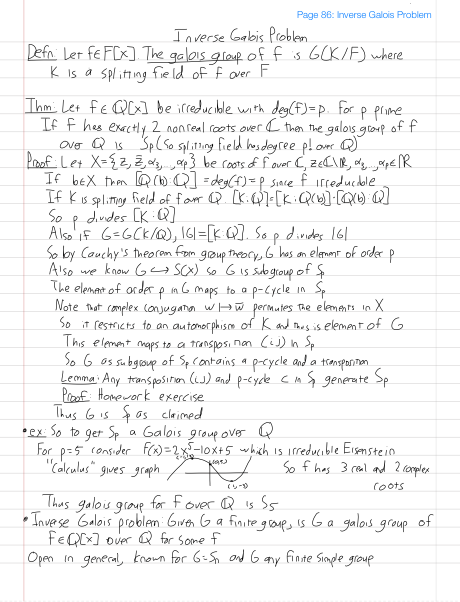 Page 86: Inverse Galois Problem
Inverse Galois Problem
Defn: Let f∈F[x]. The galois group of f is G(K/F) where
K is a splitting field of f over F
Thm: Let f ∈ Q[x] be irreducible with deg(f)=p. For p prime
If f has exactly 2 nonreal roots over C then the galois group of f
over Q is Sp (so splitting field has degree p! over Q)
Proof: Let X={z, z̄, α₃, ..., αp} be roots of f over C, z∈C\R, α₃, ..., αp∈R
If b∈X then [Q(b):Q] = deg(f) = p since f irreducible
If K is splitting field of f over Q. [K:Q]=[K:Q(b)]·[Q(b):Q]
So p divides [K:Q]
Also if G=G(K/Q), |G|=[K:Q]. So p divides |G|
So by Cauchy's theorem from group theory, G has an element of order p
Also we know G ↪ S(X) so G is subgroup of Sp
The element of order p in G maps to a p-cycle in Sp
Note that complex conjugation w ↦ w̄ permutes the elements in X
So it restricts to an automorphism of K and thus is element of G
This element maps to a transposition (i j) in Sp
So G as subgroup of Sp contains a p-cycle and a transposition
Lemma: Any transposition (i j) and p-cycle c in Sp generate Sp
Proof: Homework exercise
Thus G is Sp as claimed
• ex: So to get Sp a Galois group over Q
For p=5 consider f(x)=2x⁵-10x+5 which is irreducible Eisenstein
"Calculus" gives graph
So f has 3 real and 2 complex
roots
Thus galois group for f over Q is S₅
• Inverse Galois problem: Given G a finite group, is G a galois group of
f∈Q[x] over Q for some f
Open in general, known for G=Sn and G any finite simple group